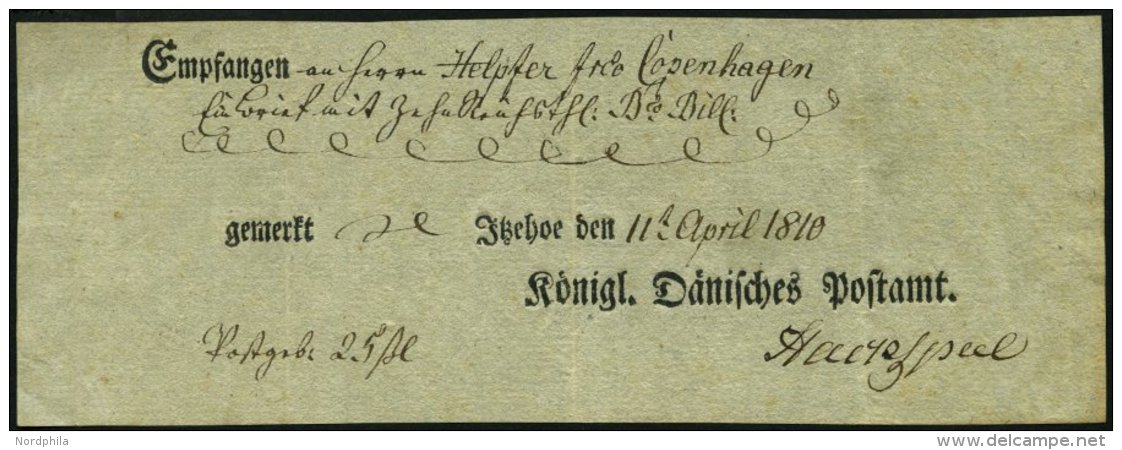 Empfangen an Herrn Helpfer frco Copenhagen
Ein Brief mit Zehn Reichsthl: Bco Bill:
gemerkt Itzehoe den 11t April 1810
Königl. Dänisches Postamt.
Postgeb: 25 ßl
Nordphila
www.delcampe.net